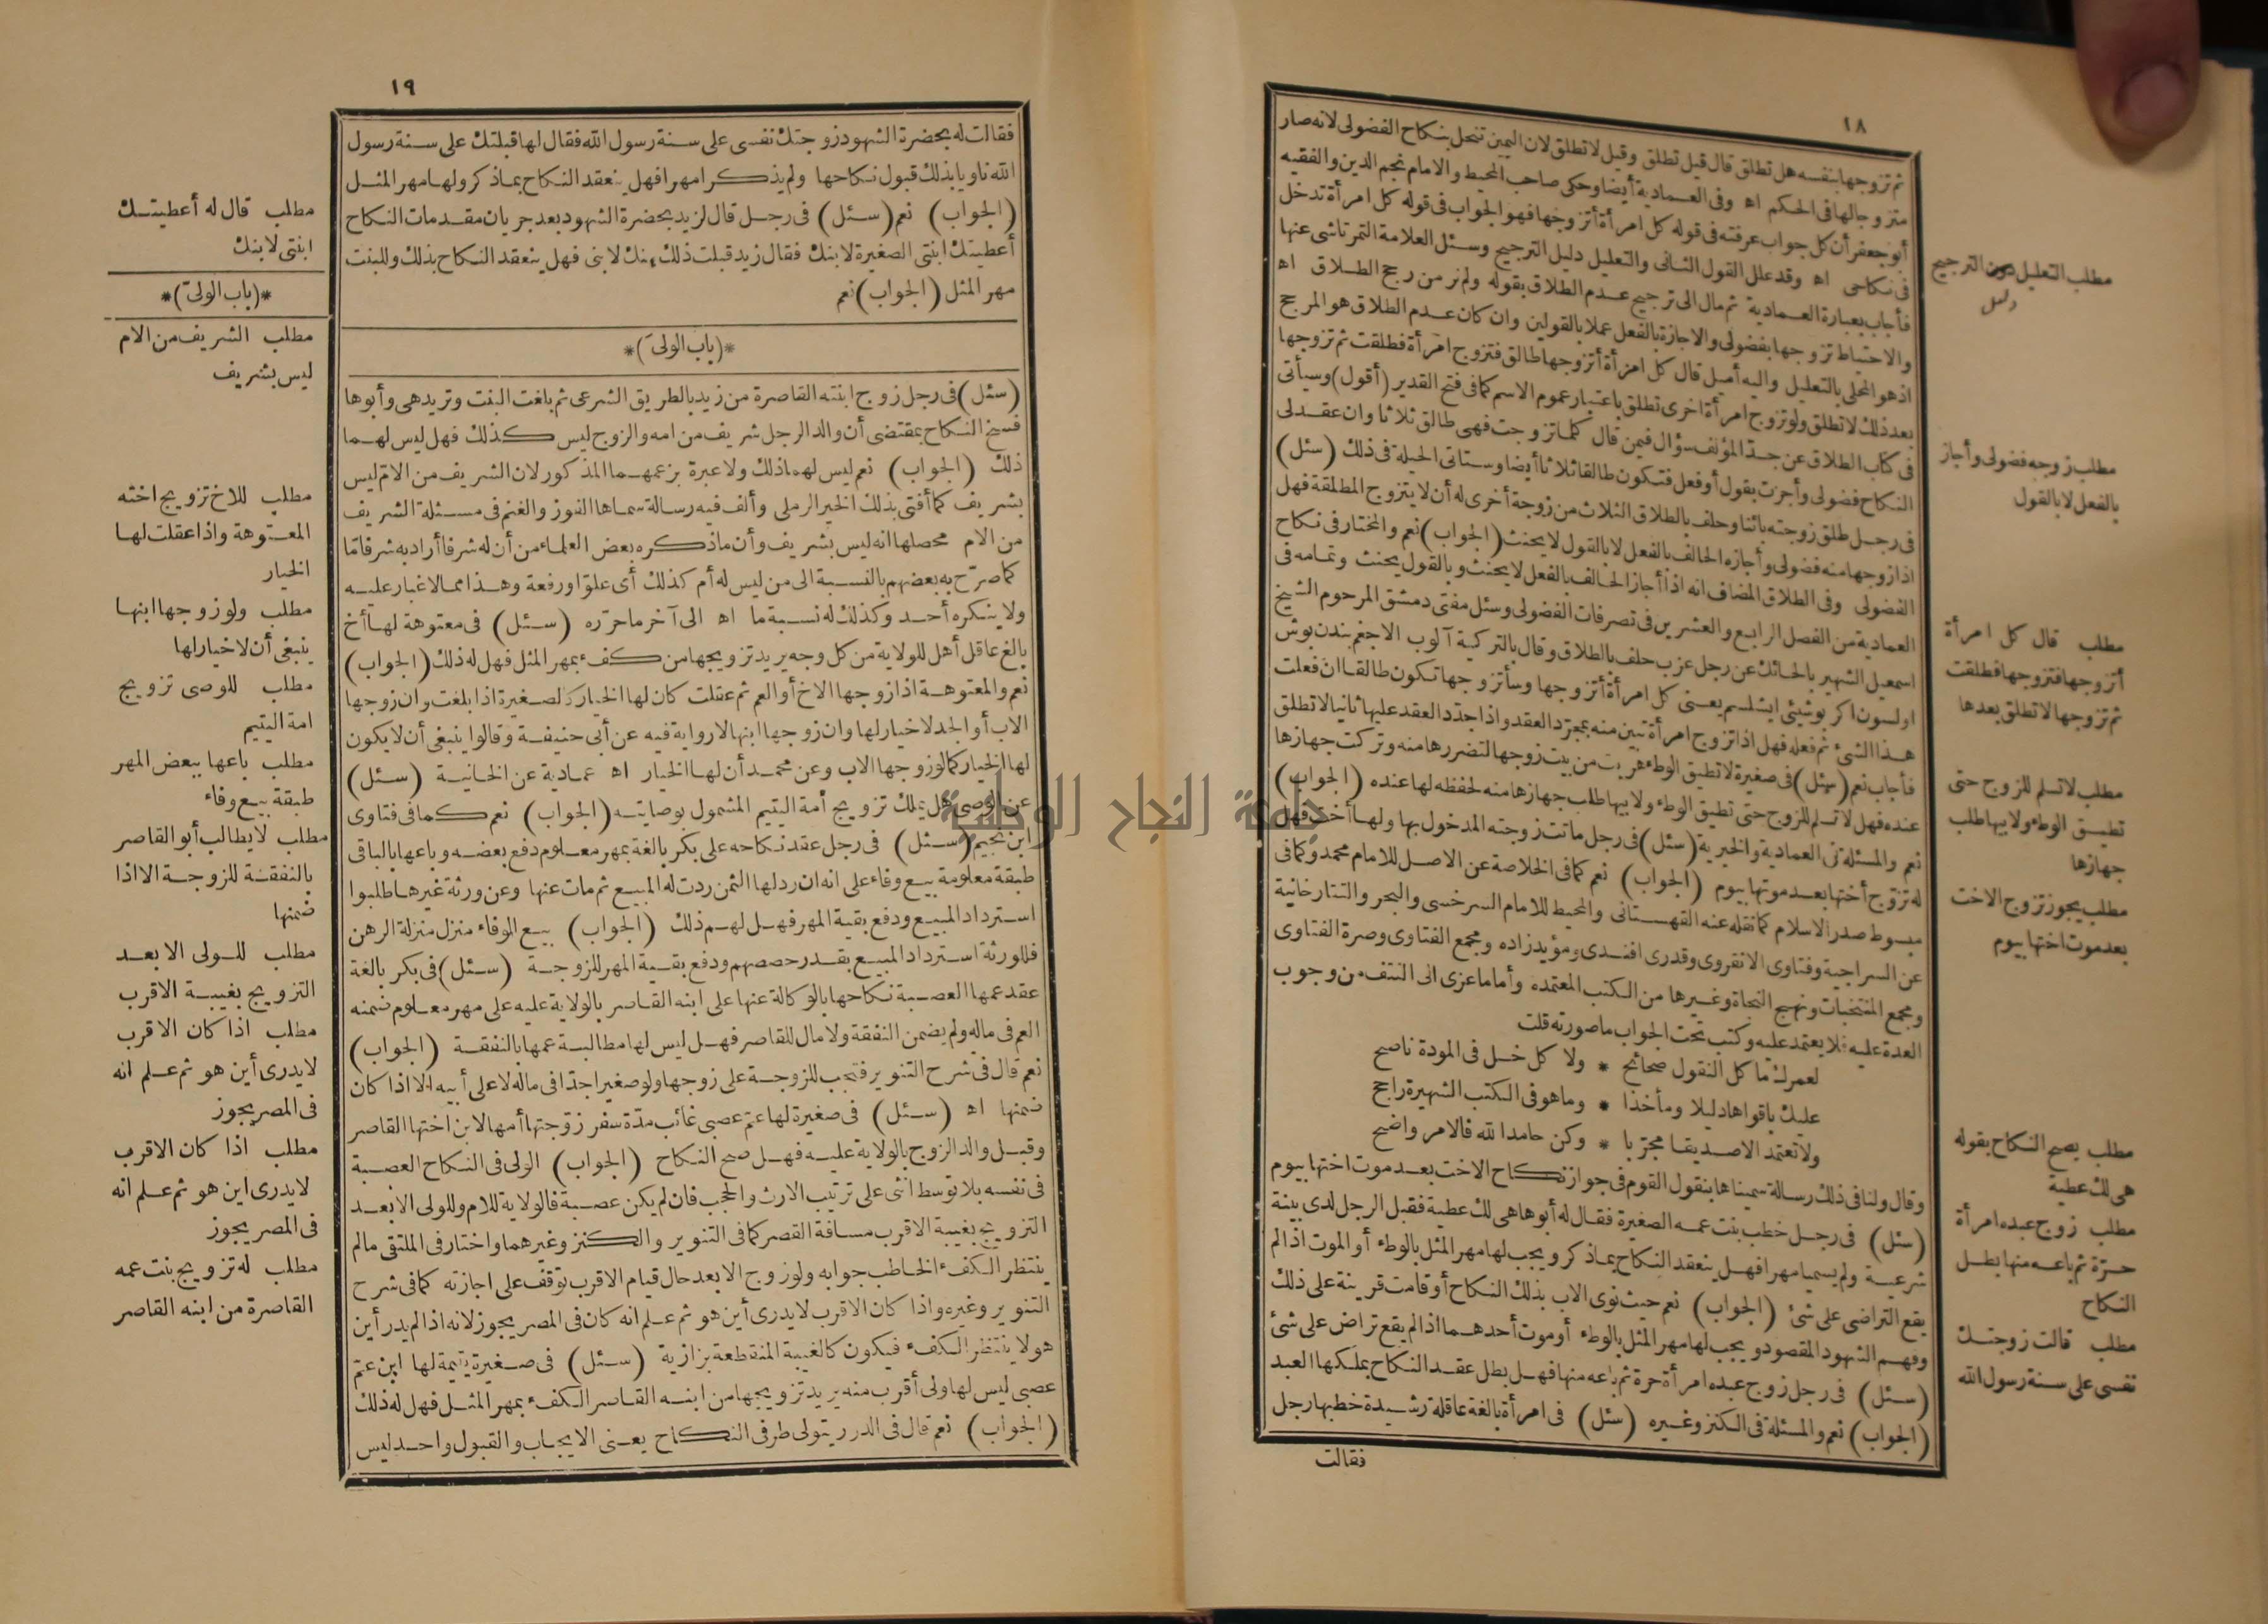 ١٨
ثم تزوجها بنفسه هل تطلق قال قيل تطلق وقيل لا تطلق لان اليمين تنحل بنكاح الفضولى لانه صار
متزوجا لها فى الحكم اه وفى العمادية أيضا وحكى صاحب المحيط والامام نجم الدين والفقيه
أبو جعفر أن كل جواب عرفته فى قوله كل امرأة أتزوجها فهو الجواب فى قوله كل امرأة تدخل
فى نكاحى اه وقد علل القول الثانى والتعليل دليل الترجيح وسئل العلامة التمرتاشى عنها
فأجاب بعبارة العمادية ثم مال الى ترجيح عدم الطلاق بقوله ولم نر من رجح الطلاق اه
والاحتياط تزوجها بفضولى والاجازة بالفعل عملا بالقولين وان كان عدم الطلاق هو المرجح
اذ هو المحلى بالتعليل واليه أميل قال كل امرأة أتزوجها طالق فتزوج امرأة فطلقت ثم تزوجها
بعد ذلك لا تطلق ولو تزوج امرأة اخرى تطلق باعتبار عموم الاسم كما فى فتح القدير (أقول) وسيأتى
فى كتاب الطلاق عن جد المؤلف سؤال فيمن قال كلما تزوجت فهى طالق ثلاثا وان عقد لى
النكاح فضولى وأجزت بقول أو فعل فتكون طالقا ثلاثا أيضا وستاتى الحيلة فى ذلك (سئل)
فى رجل طلق زوجته بائنا وحلف بالطلاق الثلاث من زوجة أخرى له أن لا يتزوج المطلقة فهل
اذا زوجها منه فضولى وأجازه الحالف بالفعل لا بالقول لا يحنث (الجواب) نعم والمختار فى نكاح
الفضولى وفى الطلاق المضاف انه اذا أجاز الحالف بالفعل لا يحنث وبالقول يحنث وتمامه فى
العمادية من الفصل الرابع والعشرين فى تصرفات الفضولى وسئل مفتى دمشق المرحوم الشيخ
اسمعيل الشهير بالحائك عن رجل عزب حلف بالطلاق وقال بالتركية آلوب الاجغم بندن بوش
اولسون اكر بوشيئى ايشلسم يعنى كل امرأة أتزوجها وسأتزوجها تكون طالقا ان فعلت
هذا الشئ ثم فعله فهل اذا تزوج امرأة تبين منه بمجرد العقد واذا جدد العقد عليها ثانيا لا تطلق
فأجاب نعم (سئل) فى صغيرة لا تطيق الوطء هربت من بيت زوجها لتضررها منه وتركت جهازها
عنده فهل لا تسلم للزوج حتى تطيق الوطء ولابيها طلب جهازها منه لحفظه لها عنده (الجواب)
نعم والمسئلة فى العمادية والخيرية (سئل) فى رجل ماتت زوجته المدخول بها ولها أخت فهل
له تزوج أختها بعد موتها بيوم (الجواب) نعم كما فى الخلاصة عن الاصل للامام محمد وكما فى
مبسوط صدر الاسلام كما نقله عنه القهستانى والمحيط للامام السرخسى والبحر والتتارخانية
عن السراجية وفتاوى الانقروى وقدرى افندى ومؤيد زاده ومجمع الفتاوى وصرة الفتاوى
ومجمع المنتخبات ونهج النجاة وغيرها من الكتب المعتمده وأما ما عزى الى النتف من وجوب
العدة عليه فلا يعتمد عليه وكتب تحت الجواب ما صورته قلت
لعمرك ما كل النقول صحائح * ولا كل خل فى المودة ناصح
عليك باقواها دليلا ومأخذا * وما هو فى الكتب الشهيرة راجح
ولا تعتمد الا صديقا مجربا * وكن حامدا لله فالامر واضح
وقال ولنا فى ذلك رسالة سميناها بنقول القوم فى جواز نكاح الاخت بعد موت اختها بيوم
(سئل) فى رجل خطب بنت عمه الصغيرة فقال له أبوها هى لك عطية فقبل الرجل لدى بينة
شرعية ولم يسميا مهرا فهل ينعقد النكاح بما ذكر ويجب لها مهر المثل بالوطء أو الموت اذا لم
يقع التراضى على شئ (الجواب) نعم حيث نوى الاب بذلك النكاح أو قامت قرينة على ذلك
وفهم الشهود المقصود ويجب لها مهر المثل بالوطء أو موت أحدهما اذا لم يقع تراض على شئ
(سئل) فى رجل زوج عبده امرأة حرة ثم باعه منها فهل بطل عقد النكاح بملكها العبد
(الجواب) نعم والمسئلة فى الكنز وغيره (سئل) فى امرأة بالغة عاقلة رشيدة خطبها رجل
فقالت
مطلب التعليل دون الترجيح
دليل
مطلب زوجه فضولى وأجاز
بالفعل لا بالقول
مطلب قال كل امرأة
أتزوجها فتزوجها فطلقت
ثم تزوجها لا تطلق بعدها
مطلب لا تسلم للزوج حتى
تطيق الوطء ولابيها طلب
جهازها
مطلب يجوز تزوج الاخت
بعد موت اختها بيوم
مطلب يصح النكاح بقوله
هى لك عطية
مطلب زوج عبده امرأة
حرة ثم باعه منها بطل
النكاح
مطلب قالت زوجتك
نفسى على سنة رسول الله
١٩
فقالت له بحضرة الشهود زوجتك نفسى على سنة رسول الله فقال لها قبلتك على سنة رسول
الله ناويا بذلك قبول نكاحها ولم يذكرا مهرا فهل ينعقد النكاح بما ذكر ولها مهر المثل
(الجواب) نعم (سئل) فى رجل قال لزيد بحضرة الشهود بعد جريان مقدمات النكاح
أعطيتك ابنتى الصغيرة لابنك فقال زيد قبلت ذلك منك لابنى فهل ينعقد النكاح بذلك وللبنت
مهر المثل (الجواب) نعم
*(باب الولى)*
(سئل) فى رجل زوج ابنته القاصرة من زيد بالطريق الشرعى ثم بلغت البنت وتريد هى وأبوها
فسخ النكاح بمقتضى أن والد الرجل شريف من امه والزوج ليس كذلك فهل ليس لهما
ذلك (الجواب) نعم ليس لهما ذلك ولا عبرة بزعمهما المذكور لان الشريف من الام ليس
بشريف كما أفتى بذلك الخير الرملى وألف فيه رسالة سماها الفوز والغنم فى مسئلة الشريف
من الام محصلها انه ليس بشريف وأن ما ذكره بعض العلماء من أن له شرفا أراد به شرفا ما
كما صرح به بعضهم بالنسبة الى من ليس له أم كذلك أى علوا ورفعة وهذا مما لا غبار عليه
ولا ينكره أحد وكذلك له نسبة ما اه الى آخر ما حرره (سئل) فى معتوهة لها أخ
بالغ عاقل أهل للولاية من كل وجه يريد تزويجها من كفء بمهر المثل فهل له ذلك (الجواب)
نعم والمعتوهة اذا زوجها الاخ أو العم ثم عقلت كان لها الخيار كالصغيرة اذا بلغت وان زوجها
الاب أو الجد لا خيار لها وان زوجها ابنها لا رواية فيه عن أبى حنيفة وقالوا ينبغى أن لا يكون
لها الخيار كما لو زوجها الاب وعن محمد أن لها الخيار اه عمادية عن الخانية (سئل)
عن الوصى هل يملك تزويج أمة اليتيم المشمول بوصايته (الجواب) نعم كما فى فتاوى
ابن نجيم (سئل) فى رجل عقد نكاحه على بكر بالغة بمهر معلوم دفع بعضه وباعها بالباقى
طبقة معلومة بيع وفاء على انه ان رد لها الثمن ردت له المبيع ثم مات عنها وعن ورثة غيرها طلبوا
استرداد المبيع ودفع بقية المهر فهل لهم ذلك (الجواب) بيع الوفاء منزل منزلة الرهن
فللورثة استرداد المبيع بقدر حصصهم ودفع بقية المهر للزوجة (سئل) فى بكر بالغة
عقد عمها العصبة نكاحها بالوكالة عنها على ابنه القاصر بالولاية عليه على مهر معلوم ضمنه
العم فى ماله ولم يضمن النفقة ولا مال للقاصر فهل ليس لها مطالبة عمها بالنفقة (الجواب)
نعم قال فى شرح التنوير فتجب للزوجة على زوجها ولو صغيرا جدا فى ماله لا على أبيه الا اذا كان
ضمنها اه (سئل) فى صغيرة لها عم عصبى غائب مدة سفر زوجتها أمها لابن اختها القاصر
وقبل والد الزوج بالولاية عليه فهل صح النكاح (الجواب) الولى فى النكاح العصبة
فى نفسه بلا توسط انثى على ترتيب الارث والحجب فان لم يكن عصبة فالولاية للام وللولى الابعد
التزويج بغيبة الاقرب مسافة القصر كما فى التنوير والكنز وغيرهما واختار فى الملتقى ما لم
ينتظر الكفء الخاطب جوابه ولو زوج الابعد حال قيام الاقرب توقف على اجازته كما فى شرح
التنوير وغيره واذا كان الاقرب لا يدرى أين هو ثم علم انه كان فى المصر يجوز لانه اذا لم يدر أين
هو لا ينتظر الكفء فيكون كالغيبة المنقطعة بزازية (سئل) فى صغيرة يتيمة لها ابن عم
عصبى ليس لها ولى أقرب منه يريد تزويجها من ابنه القاصر الكفء بمهر المثل فهل له ذلك
(الجواب) نعم قال فى الدرر يتولى طرفى النكاح يعنى الايجاب والقبول واحد ليس
مطلب قال له أعطيتك
ابنتى لابنك
*(باب الولى)*
مطلب الشريف من الام
ليس بشريف
مطلب للاخ تزويج اخته
المعتوهة واذا عقلت لها
الخيار
مطلب ولو زوجها ابنها
ينبغى أن لا خيار لها
مطلب للوصى تزويج
امة اليتيم
مطلب باعها ببعض المهر
طبقة بيع وفاء
مطلب لا يطالب أبو القاصر
بالنفقة للزوجة الا اذا
ضمنها
مطلب للولى الابعد
التزويج بغيبة الاقرب
مطلب اذا كان الاقرب
لا يدرى أين هو ثم علم انه
فى المصر يجوز
مطلب اذا كان الاقرب
لا يدرى اين هو ثم علم انه
فى المصر يجوز
مطلب له تزويج بنت عمه
القاصرة من ابنه القاصر
جامعة النجاح الوطنية